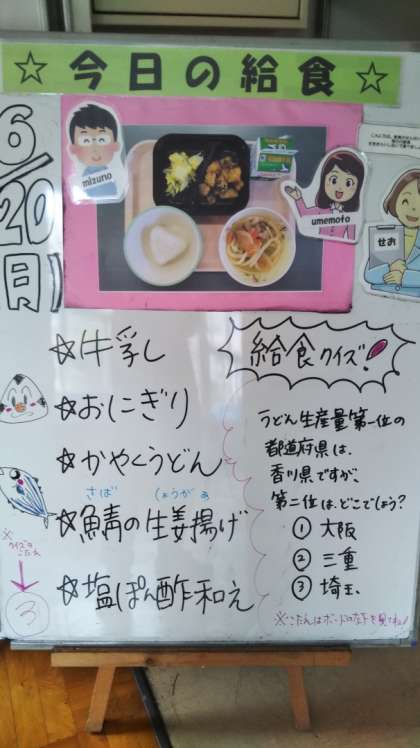 ☆ 今日の給食 ☆
6/20(日)
mizuno
umemoto
せお
☆牛乳
☆おにぎり
☆かやくうどん
さば しょうがあ
☆鯖の生姜揚げ
☆塩ぽん酢和え
※クイズのこたえ
③
給食クイズ!
うどん生産量第一位の
都道府県は、
香川県ですが、
第二位は、どこでしょう?
① 大阪
② 三重
③ 埼玉
※こたえはボードの左下を見てね!